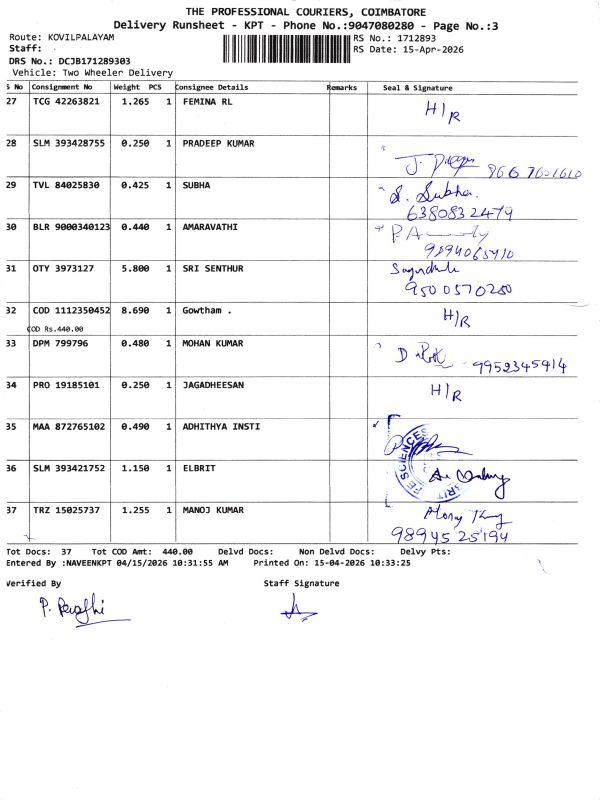 THE PROFESSIONAL COURIERS, COIMBATORE
Delivery Runsheet - KPT - Phone No.:9047080280 - Page No.:3
Route: KOVILPALAYAM RS No.: 1712893
Staff: RS Date: 15-Apr-2026
DRS No.: DCJB171289303
Vehicle: Two Wheeler Delivery
S No Consignment No Weight PCS Consignee Details Remarks Seal & Signature
27 TCG 42263821 1.265 1 FEMINA RL H/R
28 SLM 393428755 0.250 1 PRADEEP KUMAR
866 7601610
29 TVL 84025830 0.425 1 SUBHA S. Subha.
6380832479
30 BLR 9000340123 0.440 1 AMARAVATHI
9894065410
31 OTY 3973127 5.800 1 SRI SENTHUR
9500570280
32 COD 1112350452 8.690 1 Gowtham . H/R
COD Rs.440.00
33 DPM 799796 0.480 1 MOHAN KUMAR 9952345914
34 PRO 19185101 0.250 1 JAGADHEESAN H/R
35 MAA 872765102 0.490 1 ADHITHYA INSTI
36 SLM 393421752 1.150 1 ELBRIT
37 TRZ 15025737 1.255 1 MANOJ KUMAR
98945 25194
Tot Docs: 37 Tot COD Amt: 440.00 Delvd Docs: Non Delvd Docs: Delvy Pts:
Entered By :NAVEENKPT 04/15/2026 10:31:55 AM Printed On: 15-04-2026 10:33:25
Verified By Staff Signature